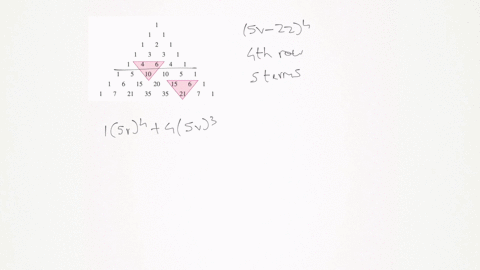 1
1 1
1 2 1
1 3 3 1
1 4 6 4 1
1 5 10 10 5 1
1 6 15 20 15 6 1
1 7 21 35 35 21 7 1
(5v-2z)^4
4th row
5 terms
1(5v)^4+4(5v)^3